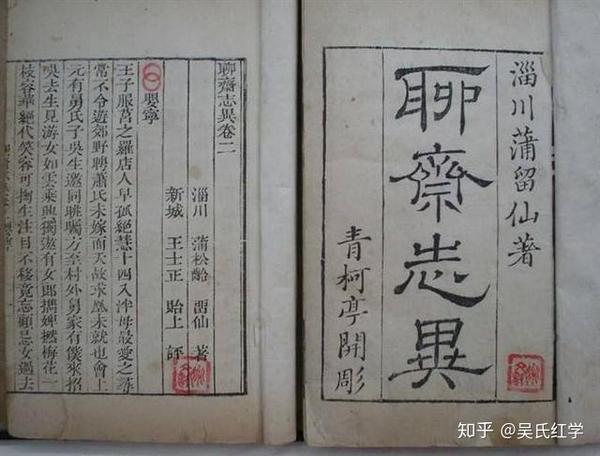 淄川蒲留仙著
聊齋志異
青柯亭開彫
聊齋志異卷二
淄川 蒲松齡 畱仙 著
新城 王士正 貽上 評
嬰寧
王子服莒之羅店人早孤絕慧十四入泮母最愛之尋
常不令遊郊野聘蕭氏未嫁而夭故求凰未就也會上
元有舅氏子吳生邀同眺矚方至村外舅家有僕來招
吳去生見游女如雲乘興獨遨有女郎擕婢撚梅花一
枝容華絕代笑容可掬生注目不移竟忘顧忌女過去
知乎 @吴氏红学